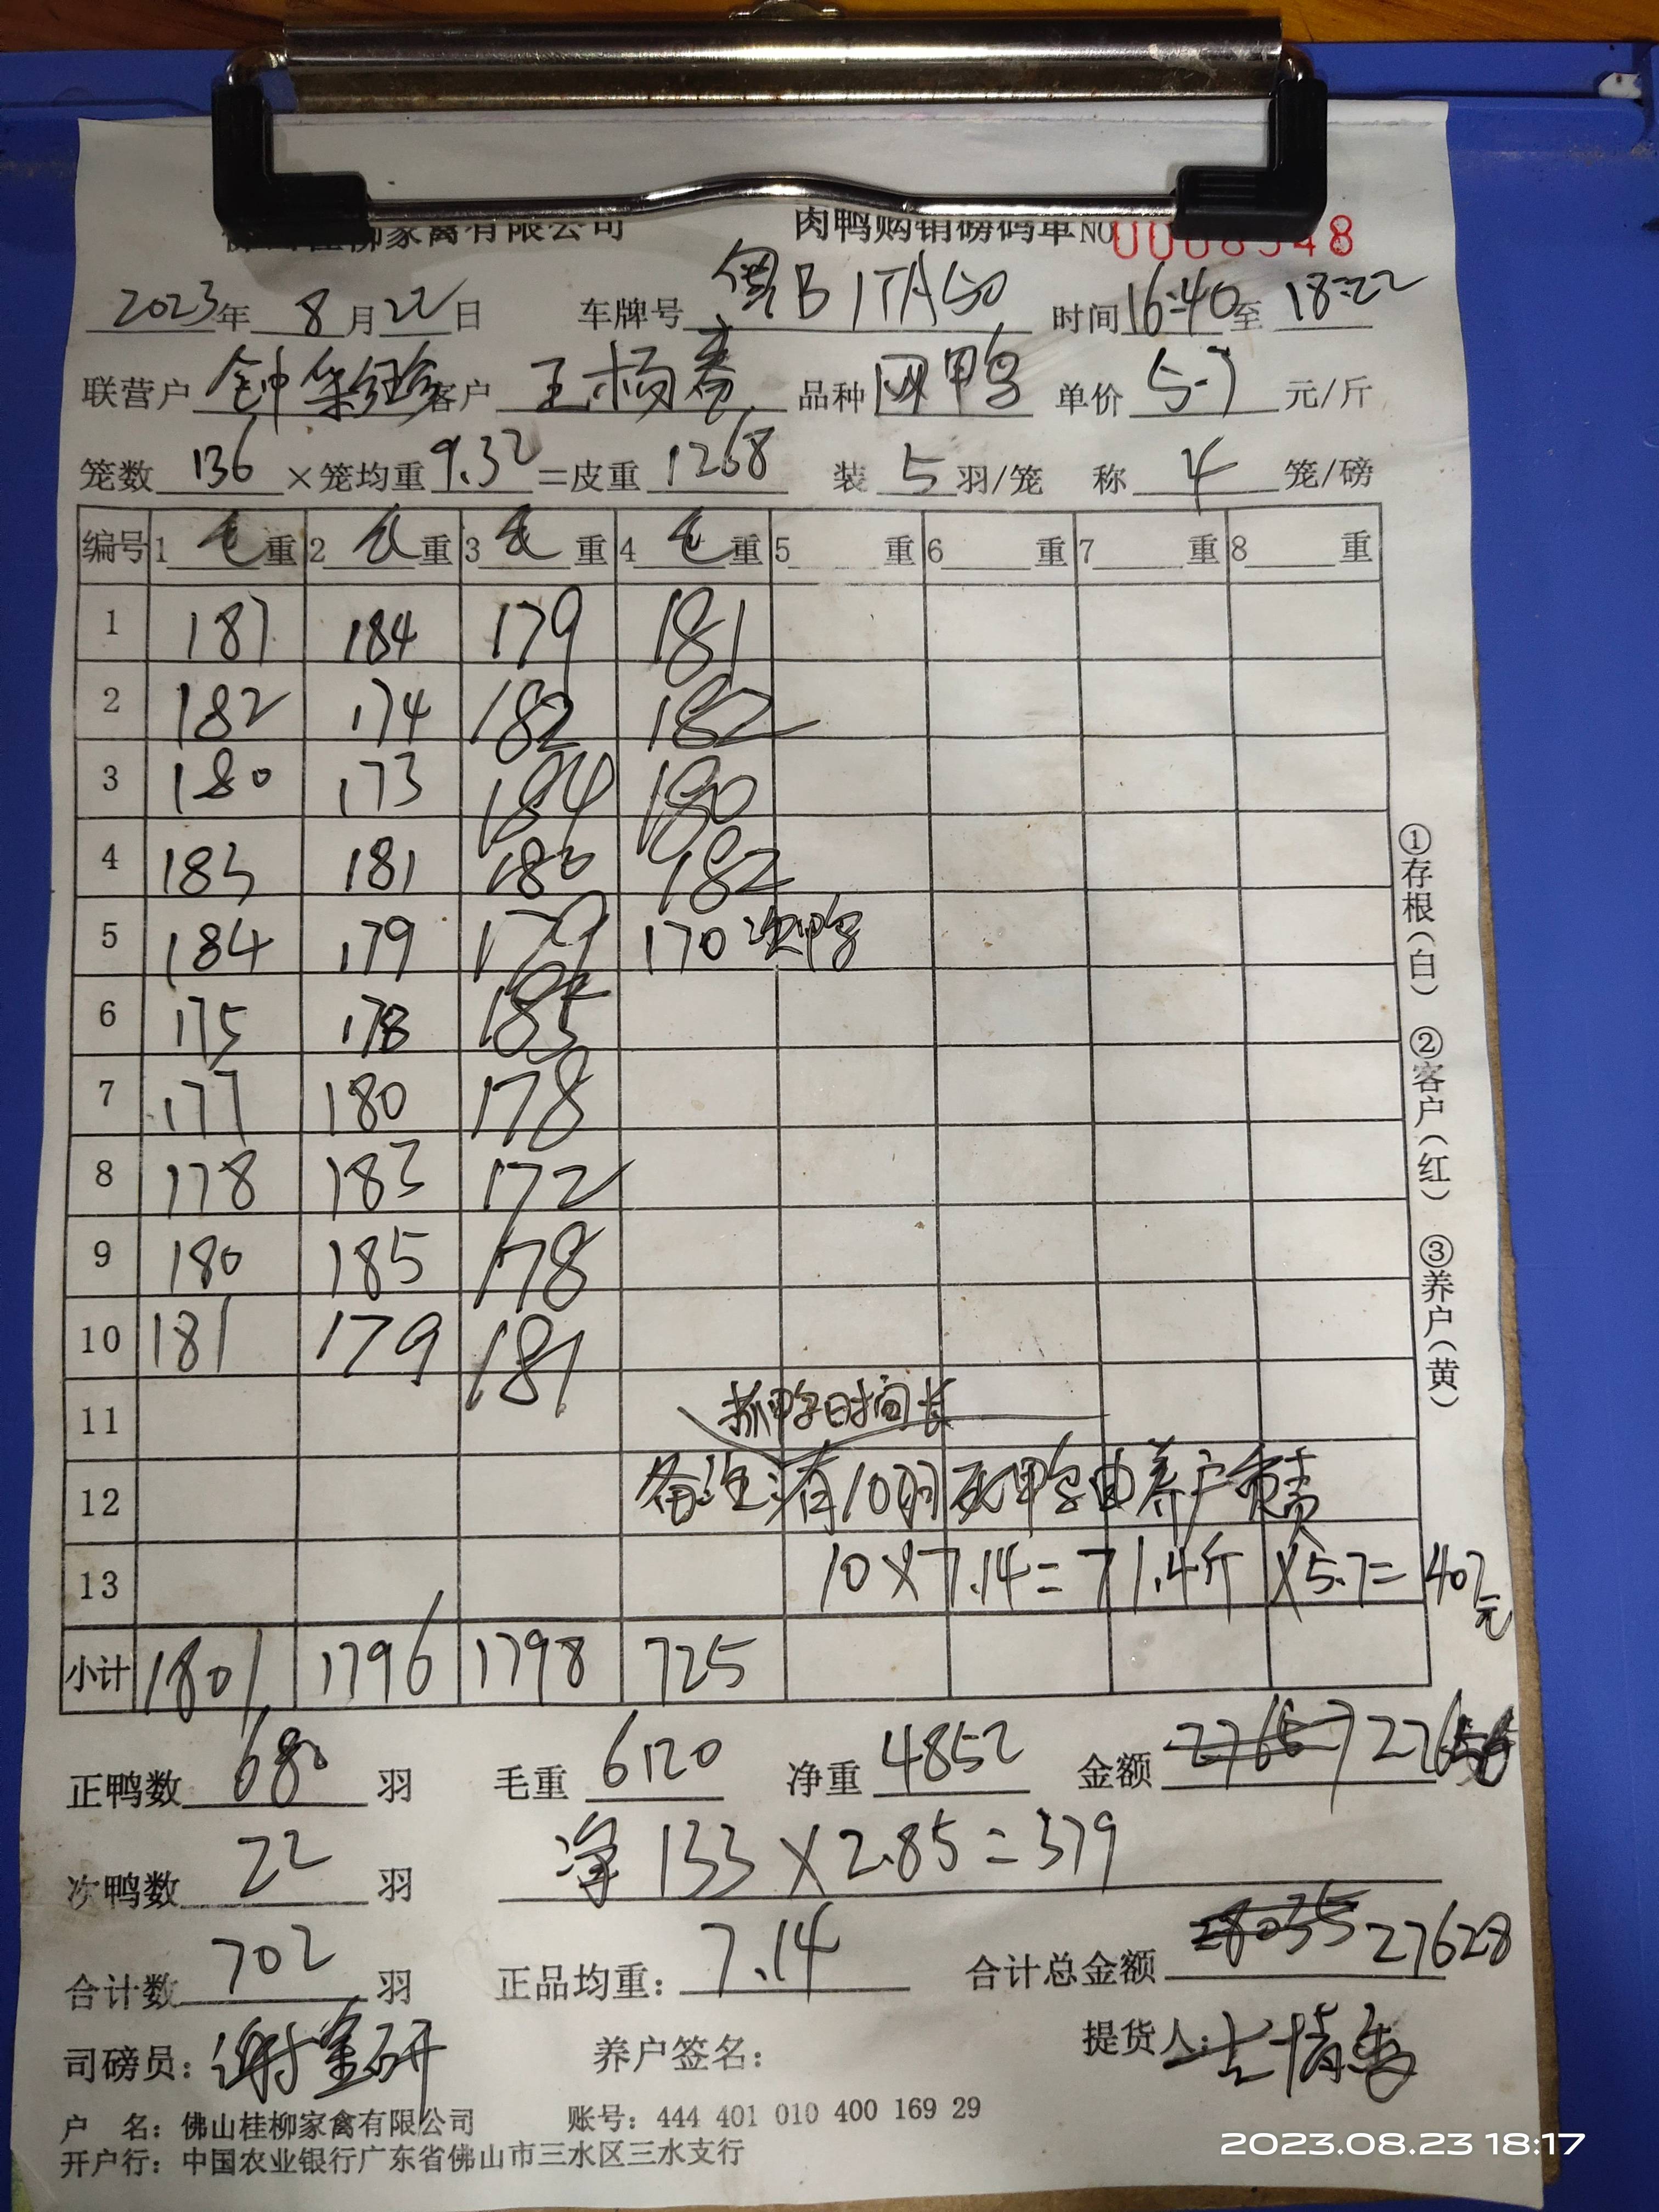 桂柳家禽有限公司 肉鸭购销磅码单 NO 0008548
2023年 8月22日 车牌号 粤B1TA50 时间16:40至18:22
联营户 钟 客户 王杨 品种 网鸭 单价 5.7 元/斤
笼数 136 ×笼均重 9.32 =皮重 1268 装 5 羽/笼 称 4 笼/磅
编号 1 毛重 2 毛重 3 毛重 4 毛重 5 重 6 重 7 重 8 重
1 181 184 179 181
2 182 174 182 182
3 180 173 184 180
4 183 181 180 182
5 184 179 179 170 次鸭
6 175 178 185
7 177 180 178
8 178 183 172
9 180 185 178
10 181 179 181
11 抓鸭时间长
12 备注:有10羽死鸭由养户负责
13 10×7.14=71.4斤 ×5.7=407元
小计 1801 1796 1798 725
正鸭数 680 羽 毛重 6120 净重 4852 金额 27657 27656
次鸭数 22 羽 净 133×2.85=379
合计数 702 羽 正品均重: 7.14 合计总金额 28035 27628
司磅员: 谢 研 养户签名: 提货人:
户 名: 佛山桂柳家禽有限公司 账号: 444 401 010 400 169 29
开户行: 中国农业银行广东省佛山市三水区三水支行
①存根(白) ②客户(红) ③养户(黄)
2023.08.23 18:17